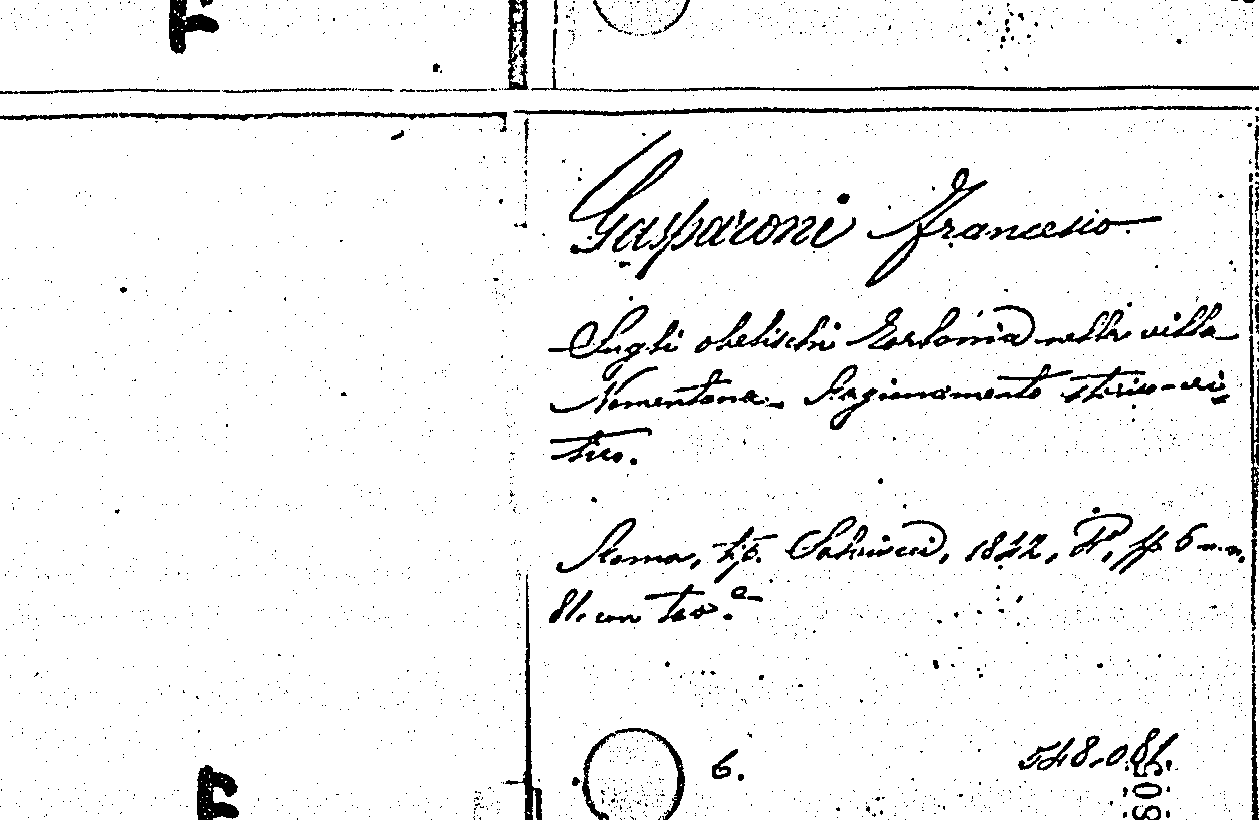 Gasparoni Francesco
Sugli obelischi Torlonia nella villa
Nomentana - Ragionamento storico-cri=
tico.
Roma, tip. Salviucci, 1842, 4°, pp 6 n.n.
81. con tav.e
6.
548.081.